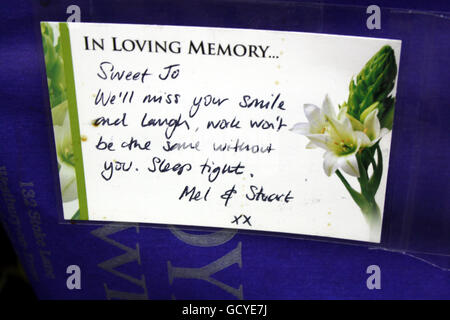 IN LOVING MEMORY...
Sweet Jo
We'll miss your smile
and laugh, work won't
be the same without
you. Sleep tight.
Mel & Stuart
xx
alamy
a
a
GCYE7J
www.alamy.com